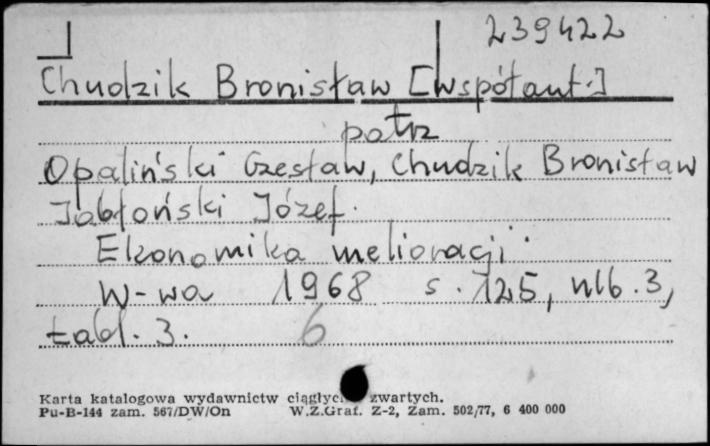 239422
Chudzik Bronisław [współaut.]
patrz
Opaliński Czesław, Chudzik Bronisław
Jabłoński Józef.
Ekonomika melioracji.
W-wa 1968 s. 125, nlb. 3,
tabl. 3. 6
Karta katalogowa wydawnictw ciągłych zwartych.
Pu-B-144 zam. 567/DW/On W.Z.Graf. Z-2, Zam. 502/77, 6 400 000